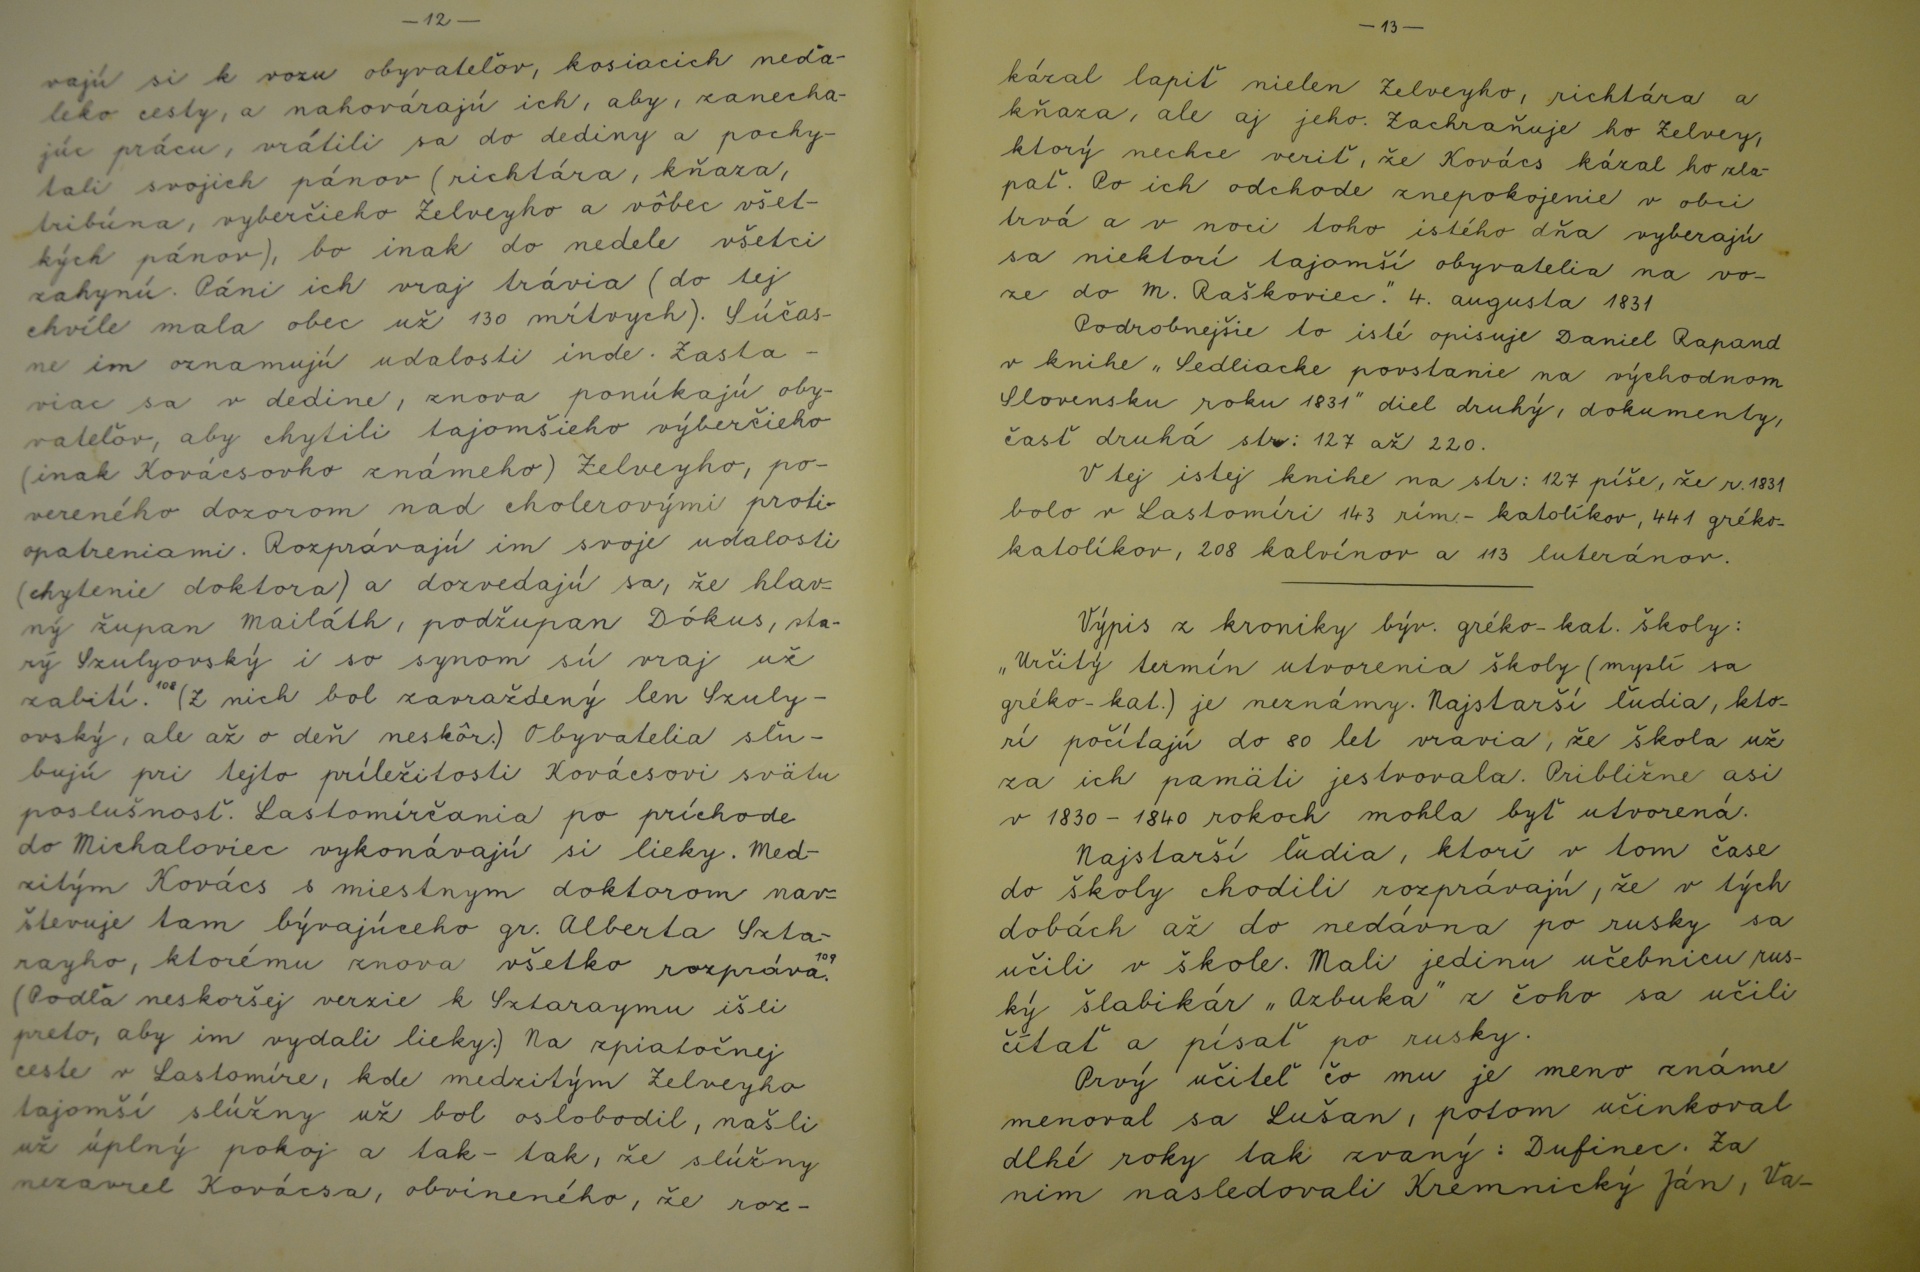 — 12 —
vajú si k vozu obyvateľov, kosiacich neďa-
leko cesty, a nahovárajú ich, aby, zanecha-
júc prácu, vrátili sa do dediny a pochy-
tali svojich pánov (richtára, kňaza,
tribúna, vyberčieho Zelveyho a vôbec všet-
kých pánov), bo inak do nedele všetci
zahynú. Páni ich vraj trávia (do tej
chvíle mala obec už 130 mŕtvych). Súčas-
ne im oznamujú udalosti inde. Zasta-
viac sa v dedine, znova ponúkajú oby-
vateľov, aby chytili tajomšieho výberčieho
(inak Kovácsovho známeho) Zelveyho, po-
vereného dozorom nad cholerovými proti-
opatreniami. Rozprávajú im svoje udalosti
(chytenie doktora) a dozvedajú sa, že hlav-
ný župan Mailáth, podžupan Dókus, sta-
rý Szulyovský i so synom sú vraj už
zabití."108 (Z nich bol zavraždený len Szuly-
ovský, ale až o deň neskôr.) Obyvatelia sľu-
bujú pri tejto príležitosti Kovácsovi svätu
poslušnosť. Lastomírčania po príchode
do Michaloviec vykonávajú si lieky. Med-
zitým Kovács s miestnym doktorom nav-
števuje tam bývajúceho gr. Alberta Szta-
rayho, ktorému znova všetko rozpráva."109
(Podľa neskoršej verzie k Sztaraymu išli
preto, aby im vydali lieky.) Na zpiatočnej
ceste v Lastomíre, kde medzitým Zelveyho
tajomší slúžny už bol oslobodil, našli
už úplný pokoj a tak-tak, že slúžny
nezavrel Kovácsa, obvineného, že roz-
— 13 —
kázal lapiť nielen Zelveyho, richtára a
kňaza, ale aj jeho. Zachraňuje ho Zelvey,
ktorý nechce veriť, že Kovács kázal ho zla-
pať. Po ich odchode znepokojenie v obci
trvá a v noci toho istého dňa vyberajú
sa niektorí tajomší obyvatelia na vo-
ze do M. Raškoviec." 4. augusta 1831
Podrobnejšie to isté opisuje Daniel Rapand
v knihe „Sedliacke povstanie na východnom
Slovensku roku 1831" diel druhý, dokumenty,
časť druhá str: 127 až 220.
V tej istej knihe na str: 127 píše, že r. 1831
bolo v Lastomíri 143 rím.- katolíkov, 441 gréko-
katolíkov, 208 kalvínov a 113 luteránov.
Výpis z kroniky býv. gréko-kat. školy:
„Určitý termín utvorenia školy (myslí sa
gréko-kat.) je neznámy. Najstarší ľudia, kto-
rí počítajú do 80 let vravia, že škola už
za ich pamäti jestvovala. Približne asi
v 1830 - 1840 rokoch mohla byť utvorená.
Najstarší ľudia, ktorí v tom čase
do školy chodili rozprávajú, že v tých
dobách až do nedávna po rusky sa
učili v škole. Mali jedinu učebnicu rus-
ký šlabikár „Azbuka" z čoho sa učili
čítať a písať po rusky.
Prvý učiteľ čo mu je meno známe
menoval sa Lušan, potom učinkoval
dlhé roky tak zvaný: Dufinec. Za
nim nasledovali Kremnický Ján, Va-